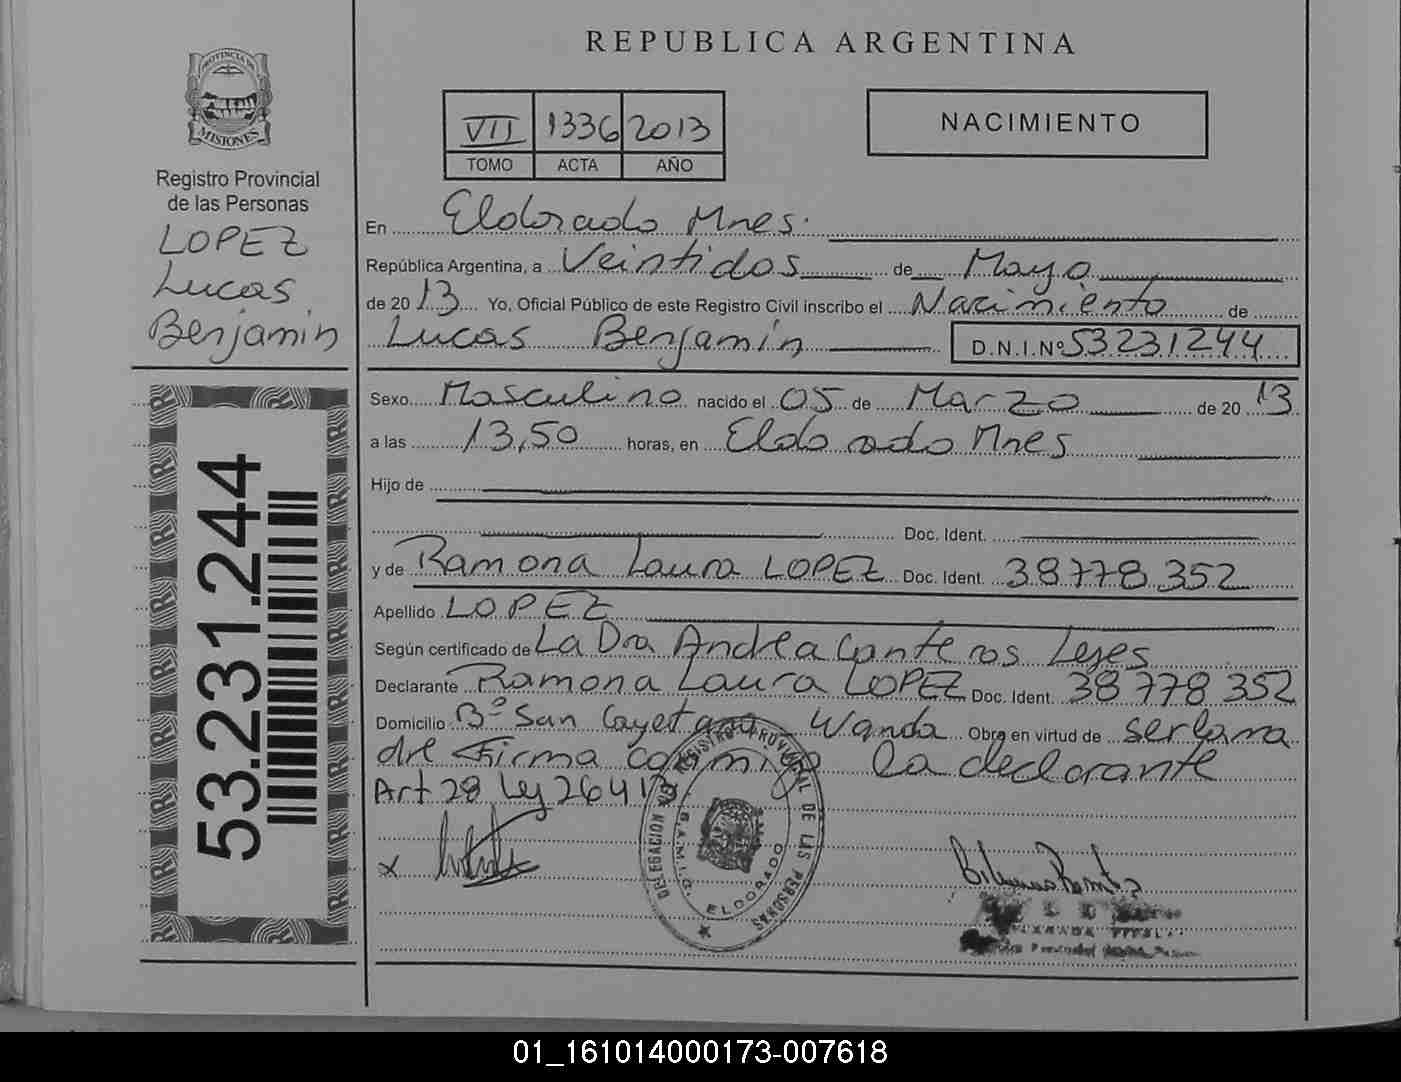 REPUBLICA ARGENTINA
PROVINCIA DE
MISIONES
Registro Provincial
de las Personas
LOPEZ
Lucas
Benjamin
53.231.244
VII 1336 2013
TOMO ACTA AÑO
NACIMIENTO
En Eldorado Mnes.
República Argentina, a Veintidos de Mayo
de 2013 Yo, Oficial Público de este Registro Civil inscribo el Nacimiento de
Lucas Benjamín D.N.I.Nº 53231244
Sexo Masculino nacido el 05 de Marzo de 2013
a las 13,50 horas, en Eldorado Mnes
Hijo de
Doc. Ident.
y de Ramona Laura LOPEZ Doc. Ident. 38778352
Apellido LOPEZ
Según certificado de La Dra Andrea Canteros Leyes
Declarante Ramona Laura LOPEZ Doc. Ident. 38778352
Domicilio Bº San Cayetano Wanda Obra en virtud de ser la ma
dre Firma conmigo la declarante
Art 28 Ley 26413
x
DELEGACION REGISTRO PROVINCIAL DE LAS PERSONAS
ELDORADO
01_161014000173-007618